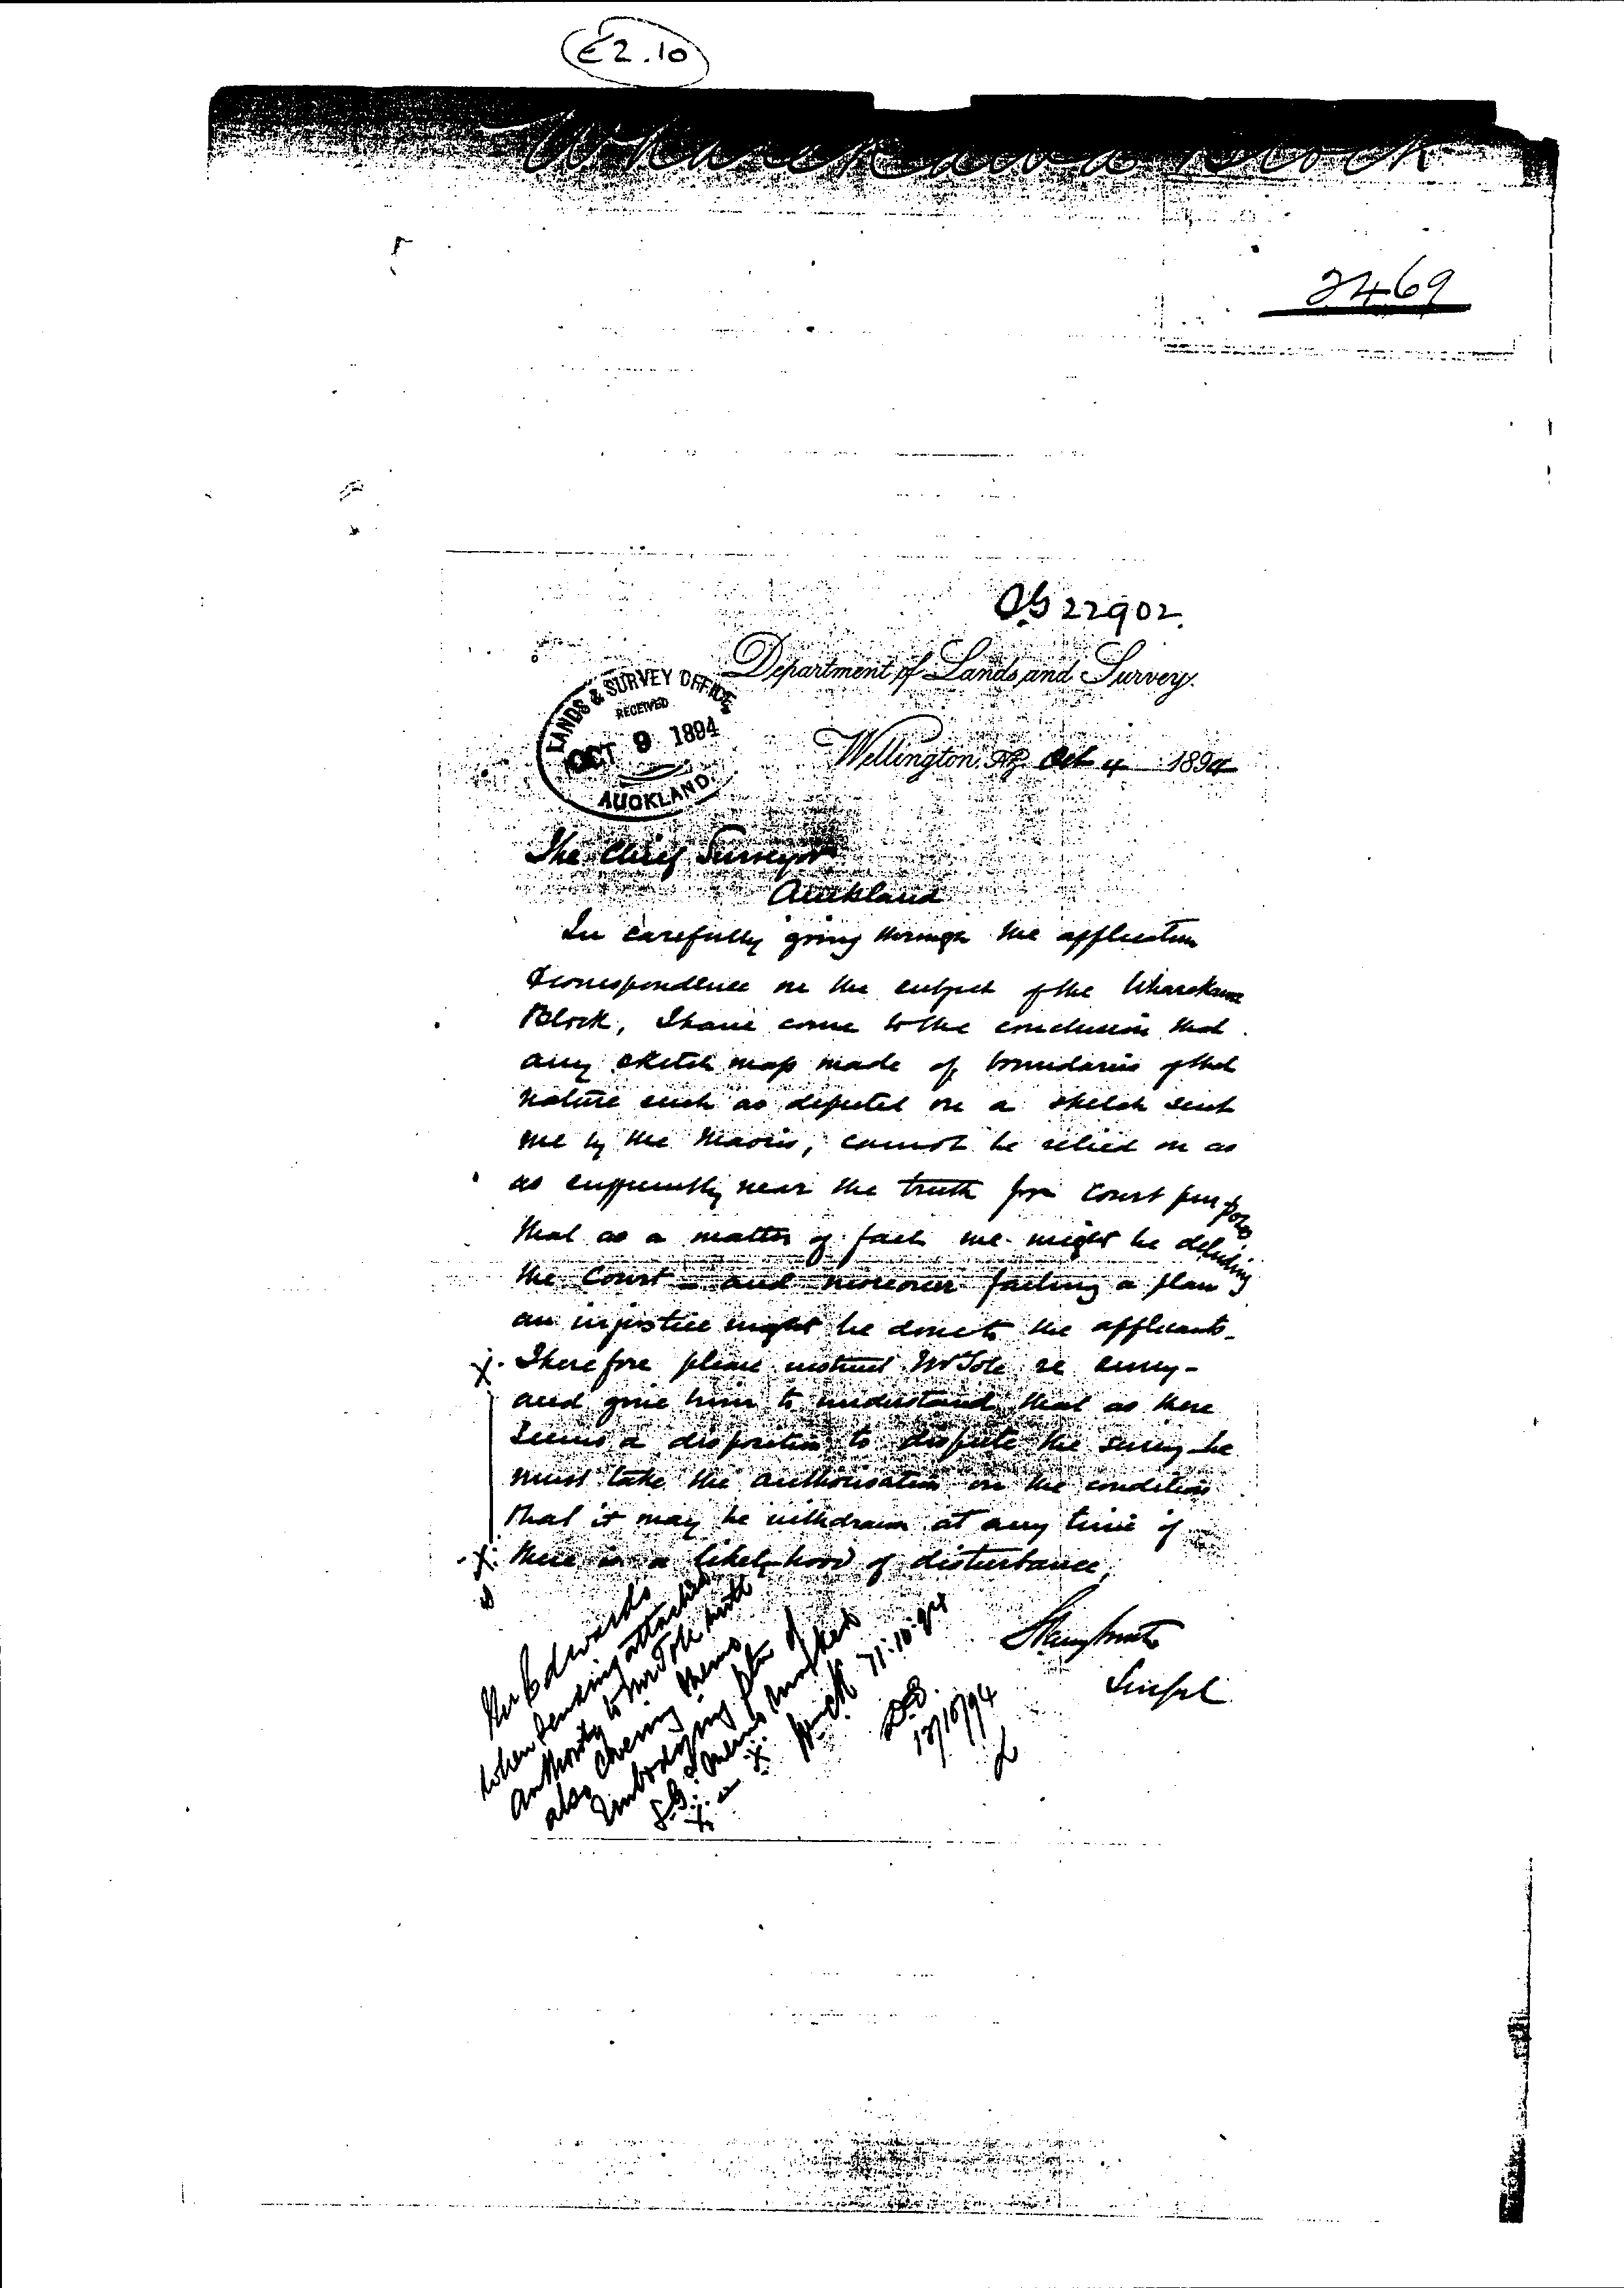 E2.10
Wharekawa Block
2469
22902.
Department of Lands and Survey.
LANDS & SURVEY OFFICE
RECEIVED
OCT 9 1894
AUCKLAND.
Wellington, NZ, Oct 4 1894
The Chief Surveyor
Auckland
In carefully going through the application
& correspondence on the subject of the
Block, I have come to the conclusion that
any sketch map made of boundaries of that
nature such as depicted on a sketch sent
me by the Maoris, cannot be relied on as
as sufficiently near the truth for Court purposes
that as a matter of fact we might be deluding
the Court - and moreover failing a plan
an injustice might be done to the applicants.
X. Therefore please instruct Mr Tole re survey -
and give him to understand that as there
seems a disposition to dispute the survey he
must take the authorisation on the condition
that it may be withdrawn at any time if
X. there is a likelyhood of disturbance,
Mr Edwards
When sending attached
authority to Mr Tole with
also
Embodying
S.G.'s memo marked
X - X
11.10.94
13/10/94